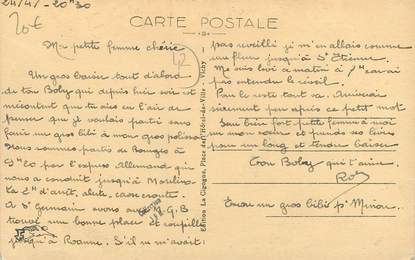 24/4/ - 20h30
20€
CARTE POSTALE
Ma petite femme chérie
Un gros baiser tout d'abord
de ton Boby qui depuis hier soir est
mécontent que tu aies eu l'air de
penser que je voulais partir sans
faire un gros bibi à mon gros polisson
Nous sommes partis de Bougie à
9h20 par l'express Allemand qui
nous a conduit jusqu'à Moulins
la 2h d'arrêt, casse croute.
A St Germain avons
trouvé une bonne place et roupillé
jusqu'à Roanne. S'il ne m'avait
pas reveillé je m'en allais comme
une fleur jusqu'à St Etienne.
Me suis levé ce matin à 7h sans
pas entendre le réveil
Pour le reste tout va. Arriverai
surement peu après ce petit mot
Sau bien fort petite femme à moi
sur mon cœur et prends ses lèvres
pour un long et tendre baiser
Ton Boby qui t'aime
Rob
Encore un gros bibi pr Minou
Edition La Cigogne, Place de l'Hôtel-de-Ville - Vichy